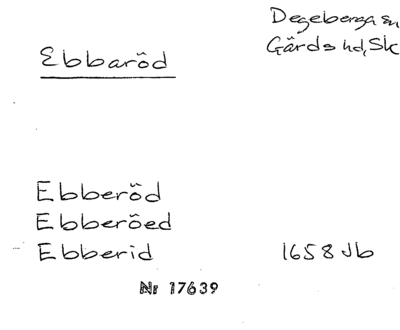 Degeberga sn
Gärds hd, Sk
Ebbaröd
Ebberöd
Ebberöed
Ebberid 1658 Jb
Nr 17639